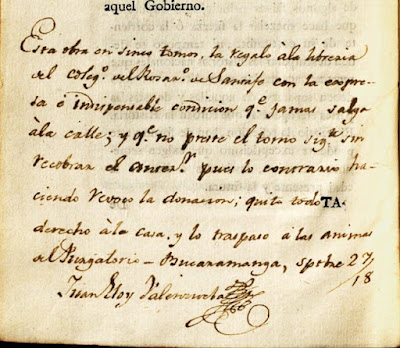 aquel Gobierno.
Esta obra en sinco tomos, la regalo âla libreria
del Colegº. del Rosarº. de Santafe con la expre-
sa é indispensable condicion qᵉ. jamas salga
âla calle; y qᵉ. no preste el tomo sigᵗᵉ. sin
recobrar el antecᵗᵉ. pues lo contrario ha-
ciendo revoco la donacion; quito todo TA-
derecho âla casa y lo traspaso â las animas
del Purgatorio – Bucaramanga, sptbre 27/18
Juan Eloy Valenzuela